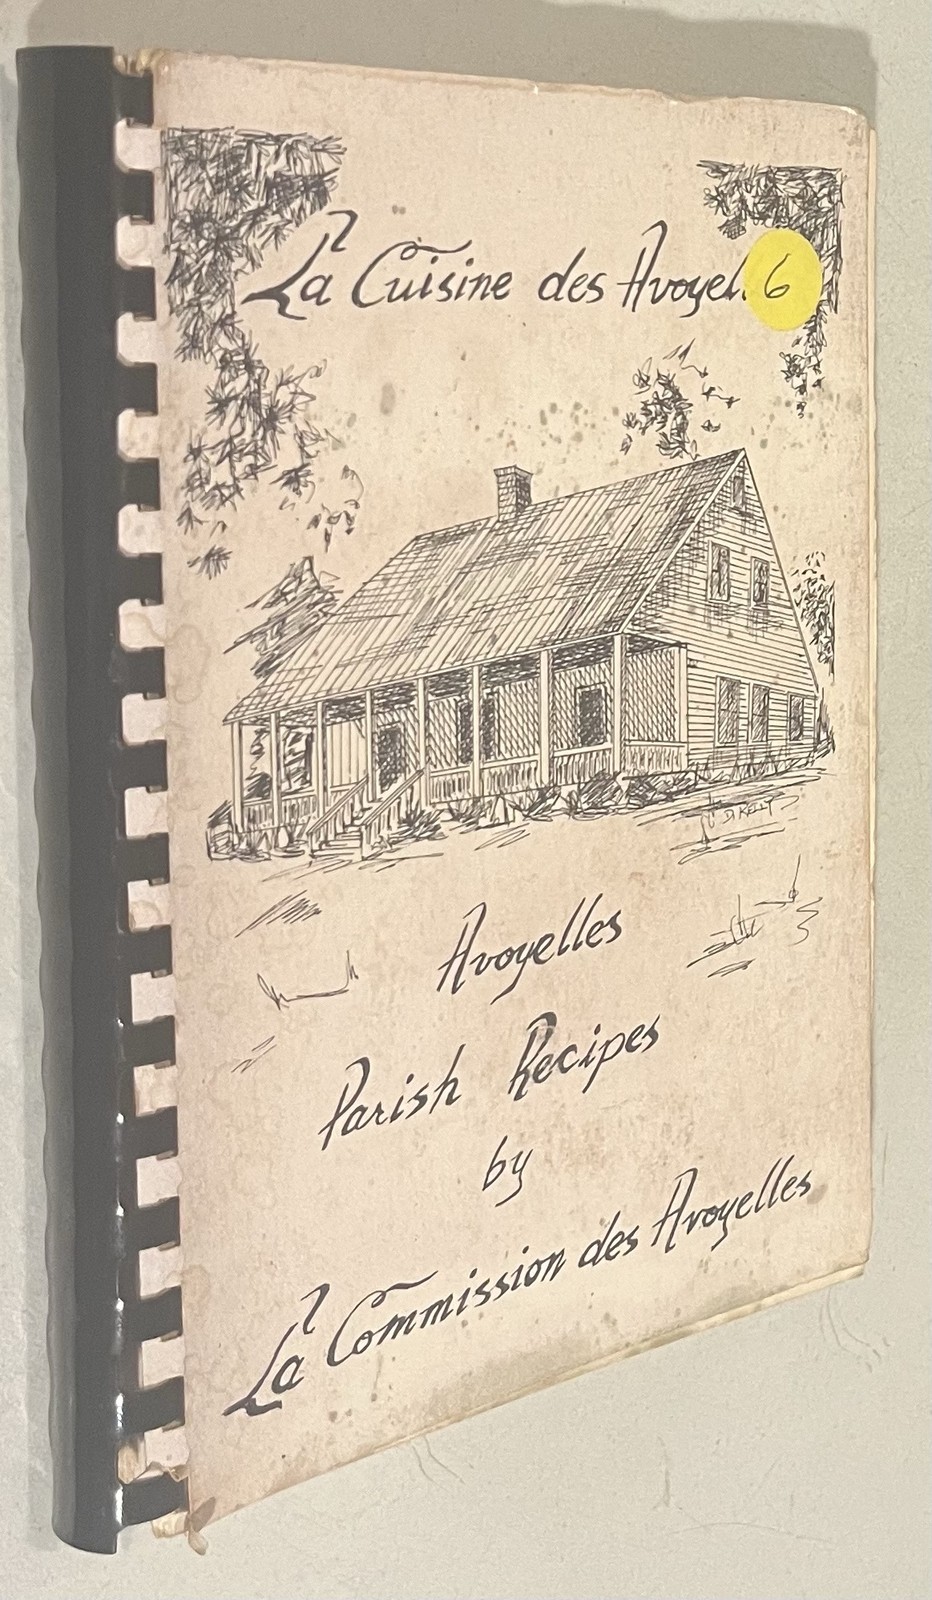 La Cuisine des Avoyel 6
D KELLY
Avoyelles
Parish Recipes
by
La Commission des Avoyelles